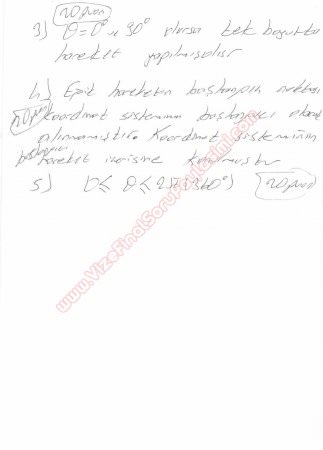 20 puan
3) θ=0° ve 90° olursa tek boyutta
hareket yapılmış olur
4) Eğik hareketin başlangıç noktası
20 puan koordinat sisteminin başlangıcı olarak
alınmamıştır. Koordinat sisteminin
başlangıcı hareket içerisine konulmuştur
5) 0 ≤ θ ≤ 2π (360°) 20 puan
www.VizeFinalSoruPaylasimi.com